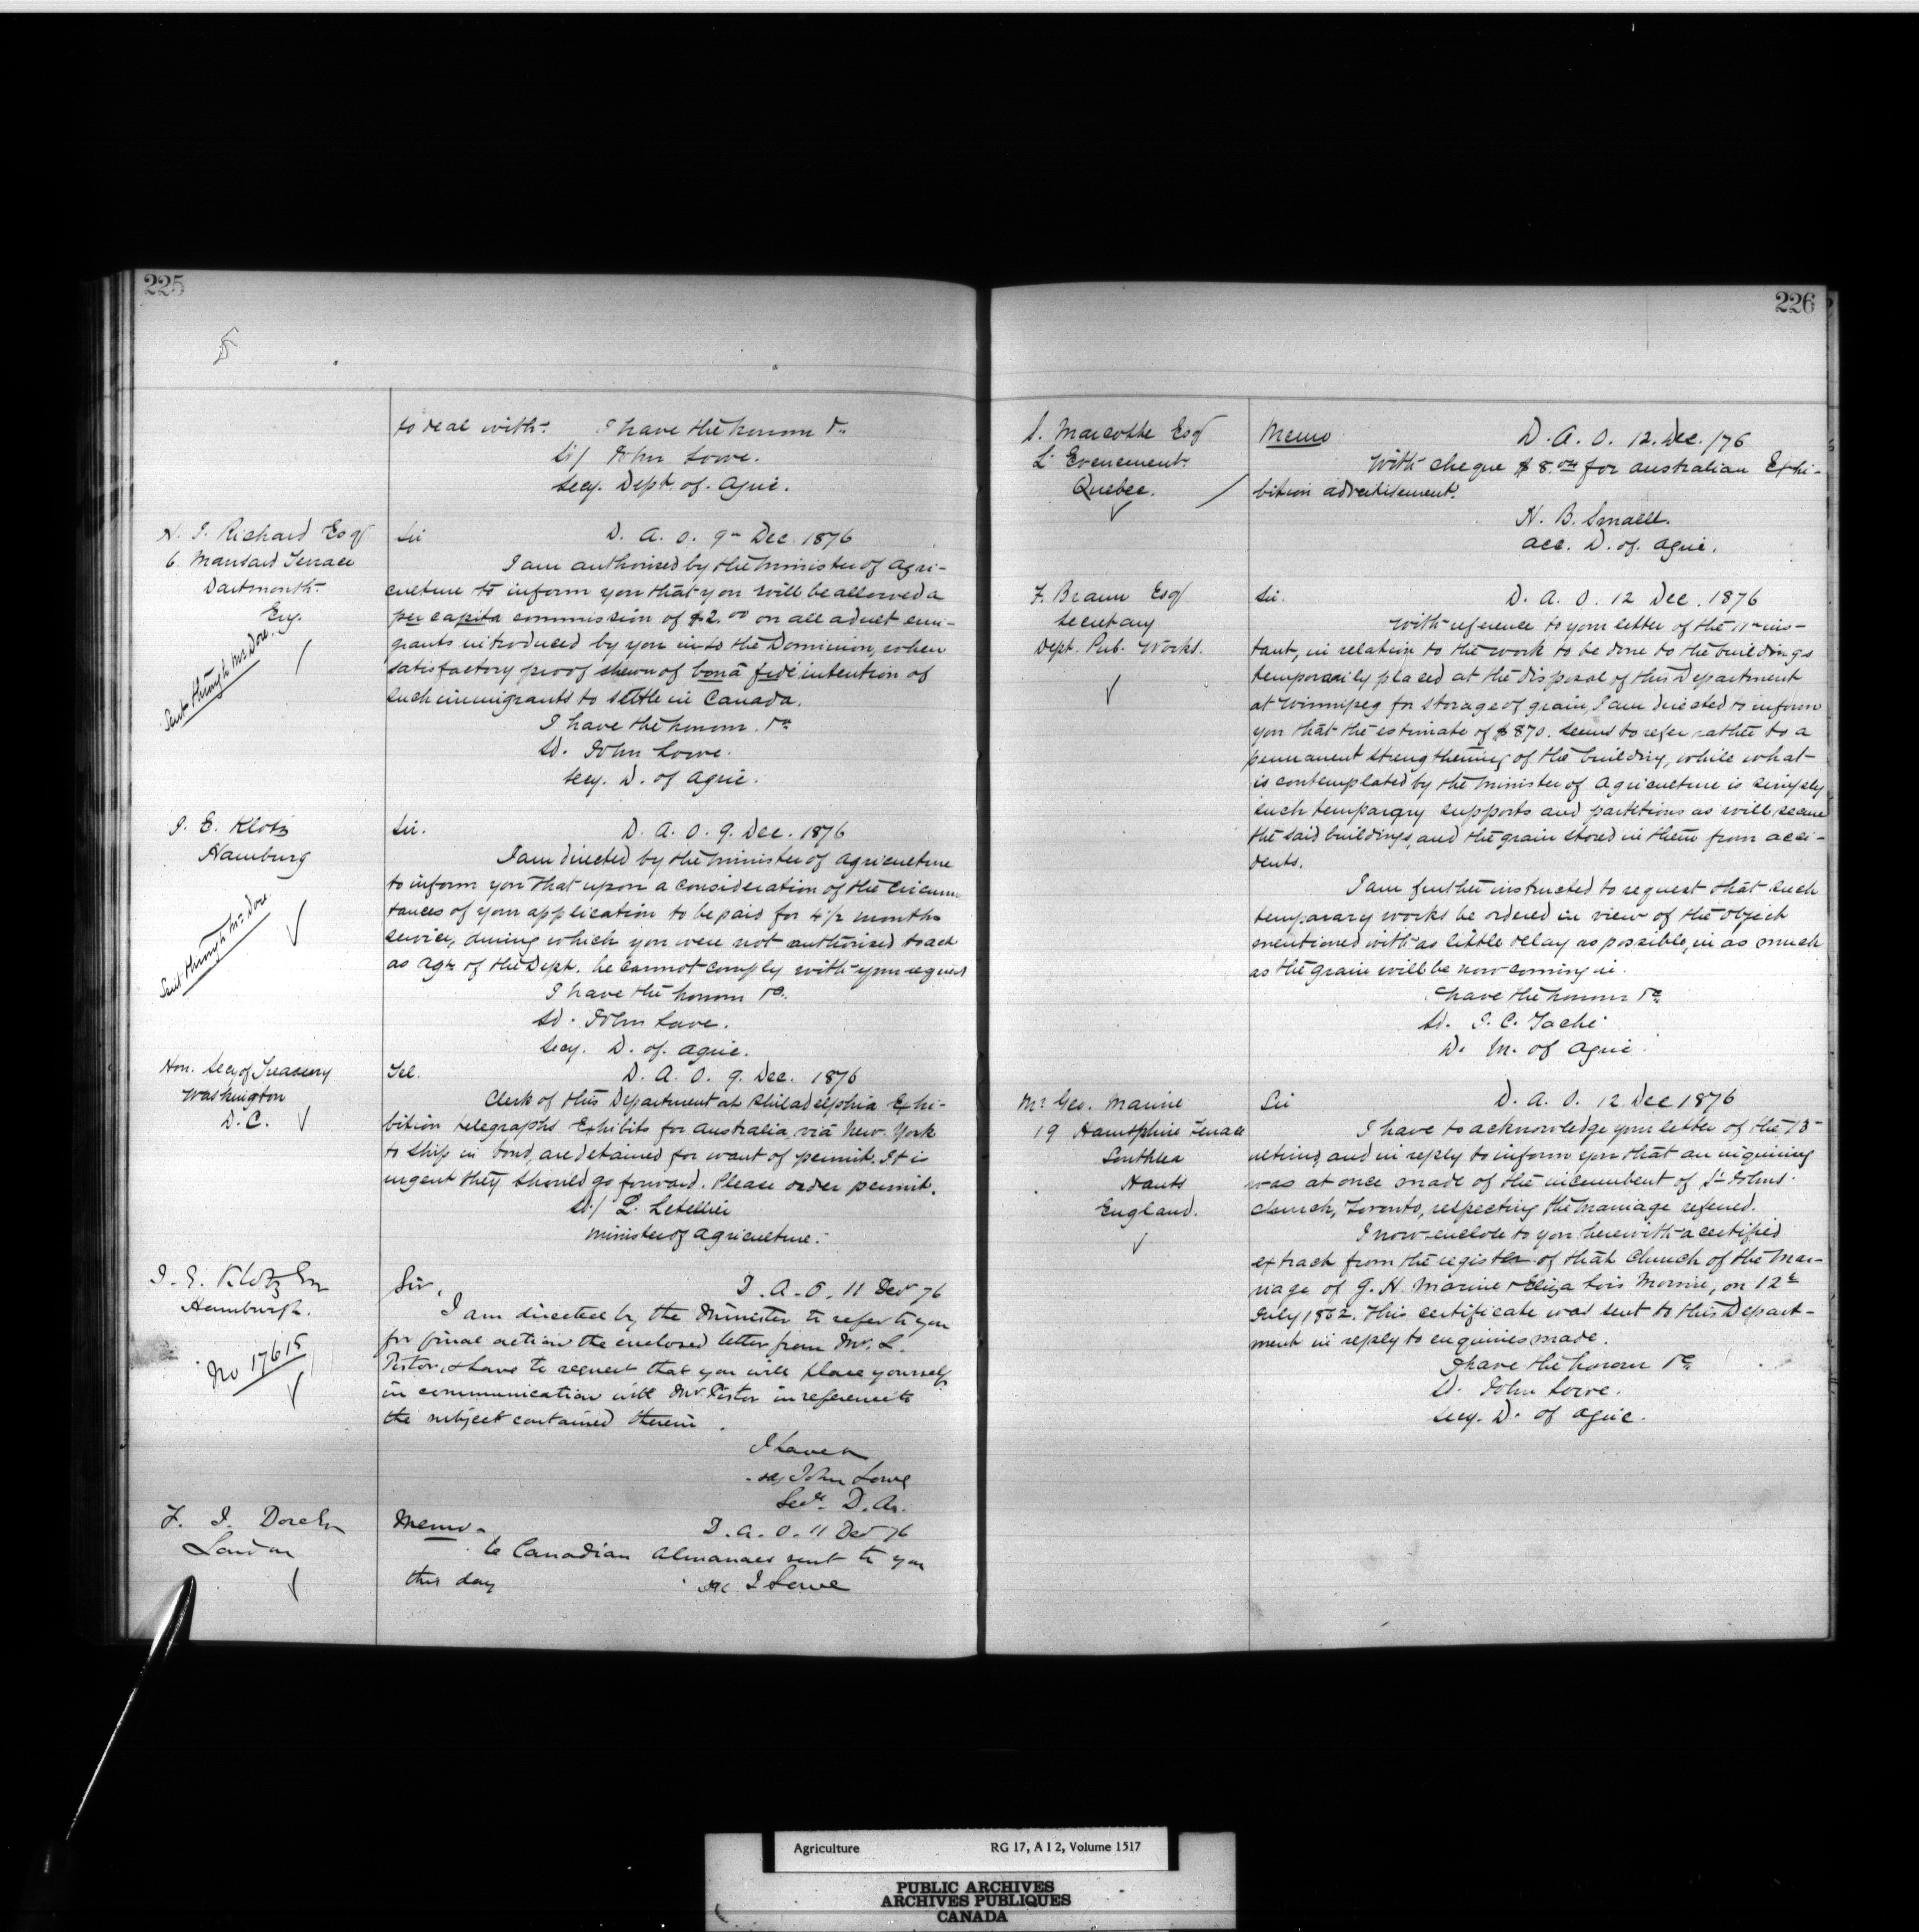 225
to deal with. I have the honor &c
Sd/ John Lowe.
Secy. Dept. of. Agric.
N. J. Richard Esq
6. Mansard Terrace
Dartmouth.
Eng.
Sent through Mr Dore.
Sir D. A. O. 9 Dec. 1876
I am authorised by the Minister of Agri-
culture to inform you that you will be allowed a
per capita commission of $2.00 on all adult emi-
grants introduced by you into the Dominion, when
satisfactory proof shewn of bonâ fide intention of
such immigrants to settle in Canada.
I have the honor. &c
Sd. John Lowe.
Secy. D. of Agric.
J. E. Klotz
Hamburg
Sent through Mr. Dore.
Sir. D. A. O. 9. Dec. 1876
I am directed by the Minister of Agriculture
to inform you that upon a consideration of the circums-
tances of your application to be paid for 4½ months
service, during which you were not authorised to act
as agt. of the Dept. he cannot comply with your request
I have the honor &c.
Sd. John Lowe.
Secy. D. of. Agric.
Hon. Secy of Treasury
Washington
D.C.
Tel. D. A. O. 9. Dec. 1876
Clerk of this Department at Philadelphia Exhi-
bition telegraphs Exhibits for Australia, viâ New York
to ship in bond, are detained for want of permit. It is
urgent they should go forward. Please order permit.
Sd/ L. Letellier
Minister of Agriculture.
J. E. Klotz Esq
Hamburgh.
No 17615
Sir, D. A. O. 11 Dec 76
I am directed by the Minister to refer to you
for final action the enclosed letter from Mr. L.
Pistor, & have to request that you will place yourself
in communication with Mr. Pistor in reference to
the subject contained therein.
I have &c
sd/ John Lowe
Secy. D. Ag.
F. J. Dore Esq
London
Memo. D. A. O. 11 Dec 76
6 Canadian Almanacs sent to you
this day sd J Lowe
226
S. Marcotte Esq
L'Evenement.
Quebec.
Memo D. A. O. 12. Dec. /76
With cheque $8.00 for Australian Exhi-
bition advertisement.
H. B. Small.
acc. D. of. Agric.
F. Braun Esq
Secretary
Dept. Pub. Works.
Sir. D. A. O. 12 Dec. 1876
With reference to your letter of the 11 ins-
tant, in relation to the work to be done to the buildings
temporarily placed at the disposal of this Department
at Winnipeg for storage of grain, I am directed to inform
you that the estimate of $870. seems to refer rather to a
permanent strengthening of the building, while what
is contemplated by the Minister of Agriculture is simply
such temporary supports and partitions as will secure
the said buildings, and the grain stored in them from acci-
dents.
I am further instructed to request that such
temporary works be ordered in view of the object
mentioned with as little delay as possible, in as much
as the grain will be now coming in.
I have the honor &c
Sd. J. C. Taché
D. M. of Agric.
Mr. Geo. Marine
19 Hampshire Terrace
Southsea
Hants
England.
Sir D. A. O. 12 Dec 1876
I have to acknowledge your letter of the 13
ultimo, and in reply to inform you that an inquiring
was at once made of the incumbent of St Johns
Church, Toronto, respecting the marriage referred.
I now enclose to you herewith a certified
extract from the register of that Church of the Mar-
riage of G. H. Marine & Eliza Lois Morine, on 12
July 1862. This certificate was sent to this Depart-
ment in reply to enquiries made.
I have the honor &c
Sd. John Lowe.
Secy. D. of Agric.
Agriculture RG 17, A I 2, Volume 1517
PUBLIC ARCHIVES
ARCHIVES PUBLIQUES
CANADA